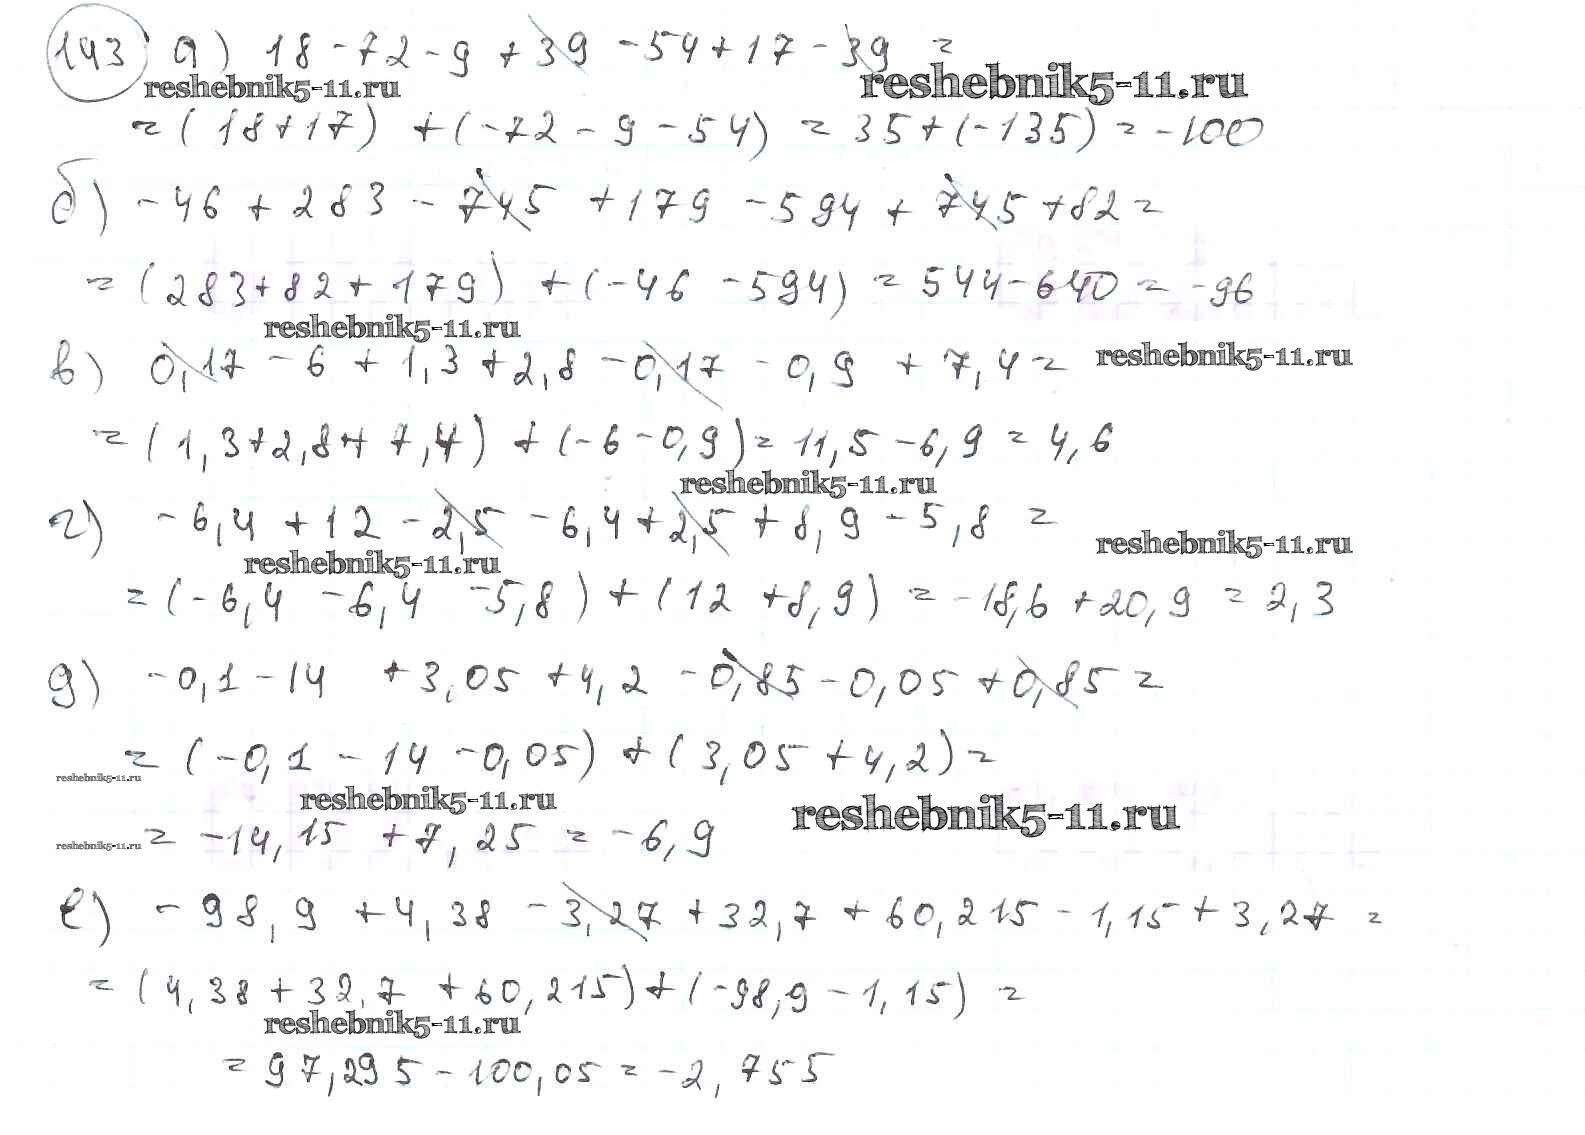 143 а) 18 - 72 - 9 + 39 - 54 + 17 - 39 =
reshebnik5-11.ru reshebnik5-11.ru
= (18+17) + (-72 - 9 - 54) = 35 + (-135) = -100
б) -46 + 283 - 745 + 179 - 594 + 745 + 82 =
= (283 + 82 + 179) + (-46 - 594) = 544 - 640 = -96
reshebnik5-11.ru
в) 0,17 - 6 + 1,3 + 2,8 - 0,17 - 0,9 + 7,4 = reshebnik5-11.ru
= (1,3 + 2,8 + 7,4) + (-6 - 0,9) = 11,5 - 6,9 = 4,6
reshebnik5-11.ru
г) -6,4 + 12 - 2,5 - 6,4 + 2,5 + 8,9 - 5,8 =
reshebnik5-11.ru reshebnik5-11.ru
= (-6,4 - 6,4 - 5,8) + (12 + 8,9) = -18,6 + 20,9 = 2,3
д) -0,1 - 14 + 3,05 + 4,2 - 0,85 - 0,05 + 0,85 =
= (-0,1 - 14 - 0,05) + (3,05 + 4,2) =
reshebnik5-11.ru
reshebnik5-11.ru reshebnik5-11.ru
reshebnik5-11.ru = -14,15 + 7,25 = -6,9
е) -98,9 + 4,38 - 3,27 + 32,7 + 60,215 - 1,15 + 3,27 =
= (4,38 + 32,7 + 60,215) + (-98,9 - 1,15) =
reshebnik5-11.ru
= 97,295 - 100,05 = -2,755